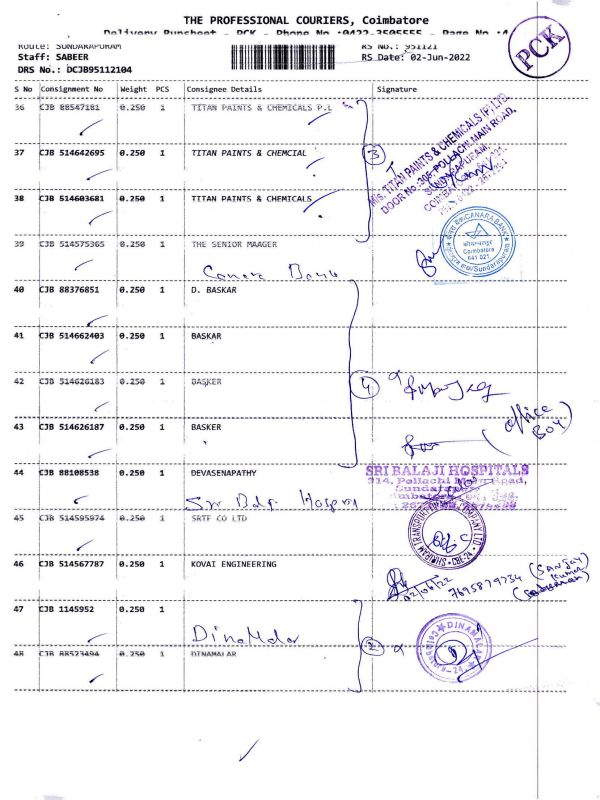 THE PROFESSIONAL COURIERS, Coimbatore
Delivery Runsheet - PCK - Phone No :0422-3505555 - Page No :4
PCK
Route: SUNDARAPURAM
RS No.: 951121
Staff: SABEER
RS Date: 02-Jun-2022
DRS No.: DCJB95112104
S No Consignment No Weight PCS Consignee Details Signature
36 CJB 88547181 0.250 1 TITAN PAINTS & CHEMICALS P.L
37 CJB 514642695 0.250 1 TITAN PAINTS & CHEMCIAL
3
M/s. TITAN PAINTS & CHEMICALS (P) LTD.
DOOR No.:305-POLLACHI MAIN ROAD,
SUNDARAPURAM,
38 CJB 514603681 0.250 1 TITAN PAINTS & CHEMICALS
39 CJB 514575365 0.250 1 THE SENIOR MAAGER
Canara Bank
CANARA BANK
Coimbatore
641 021
Sundarapuram
40 CJB 88376851 0.250 1 D. BASKAR
41 CJB 514662403 0.250 1 BASKAR
42 CJB 514626183 0.250 1 BASKER
4
43 CJB 514626187 0.250 1 BASKER
(office Boy)
44 CJB 88108538 0.250 1 DEVASENAPATHY
Sri Balaji Hospital
SRI BALAJI HOSPITALS
314, Pollachi Main Road,
45 CJB 514595974 0.250 1 SRTF CO LTD
46 CJB 514567787 0.250 1 KOVAI ENGINEERING
02/06/22 7695879734 (Sanjay
47 CJB 1145952 0.250 1
DinaMalar
DINAMALAR
2
48 CJB 88523494 0.250 1 DINAMALAR